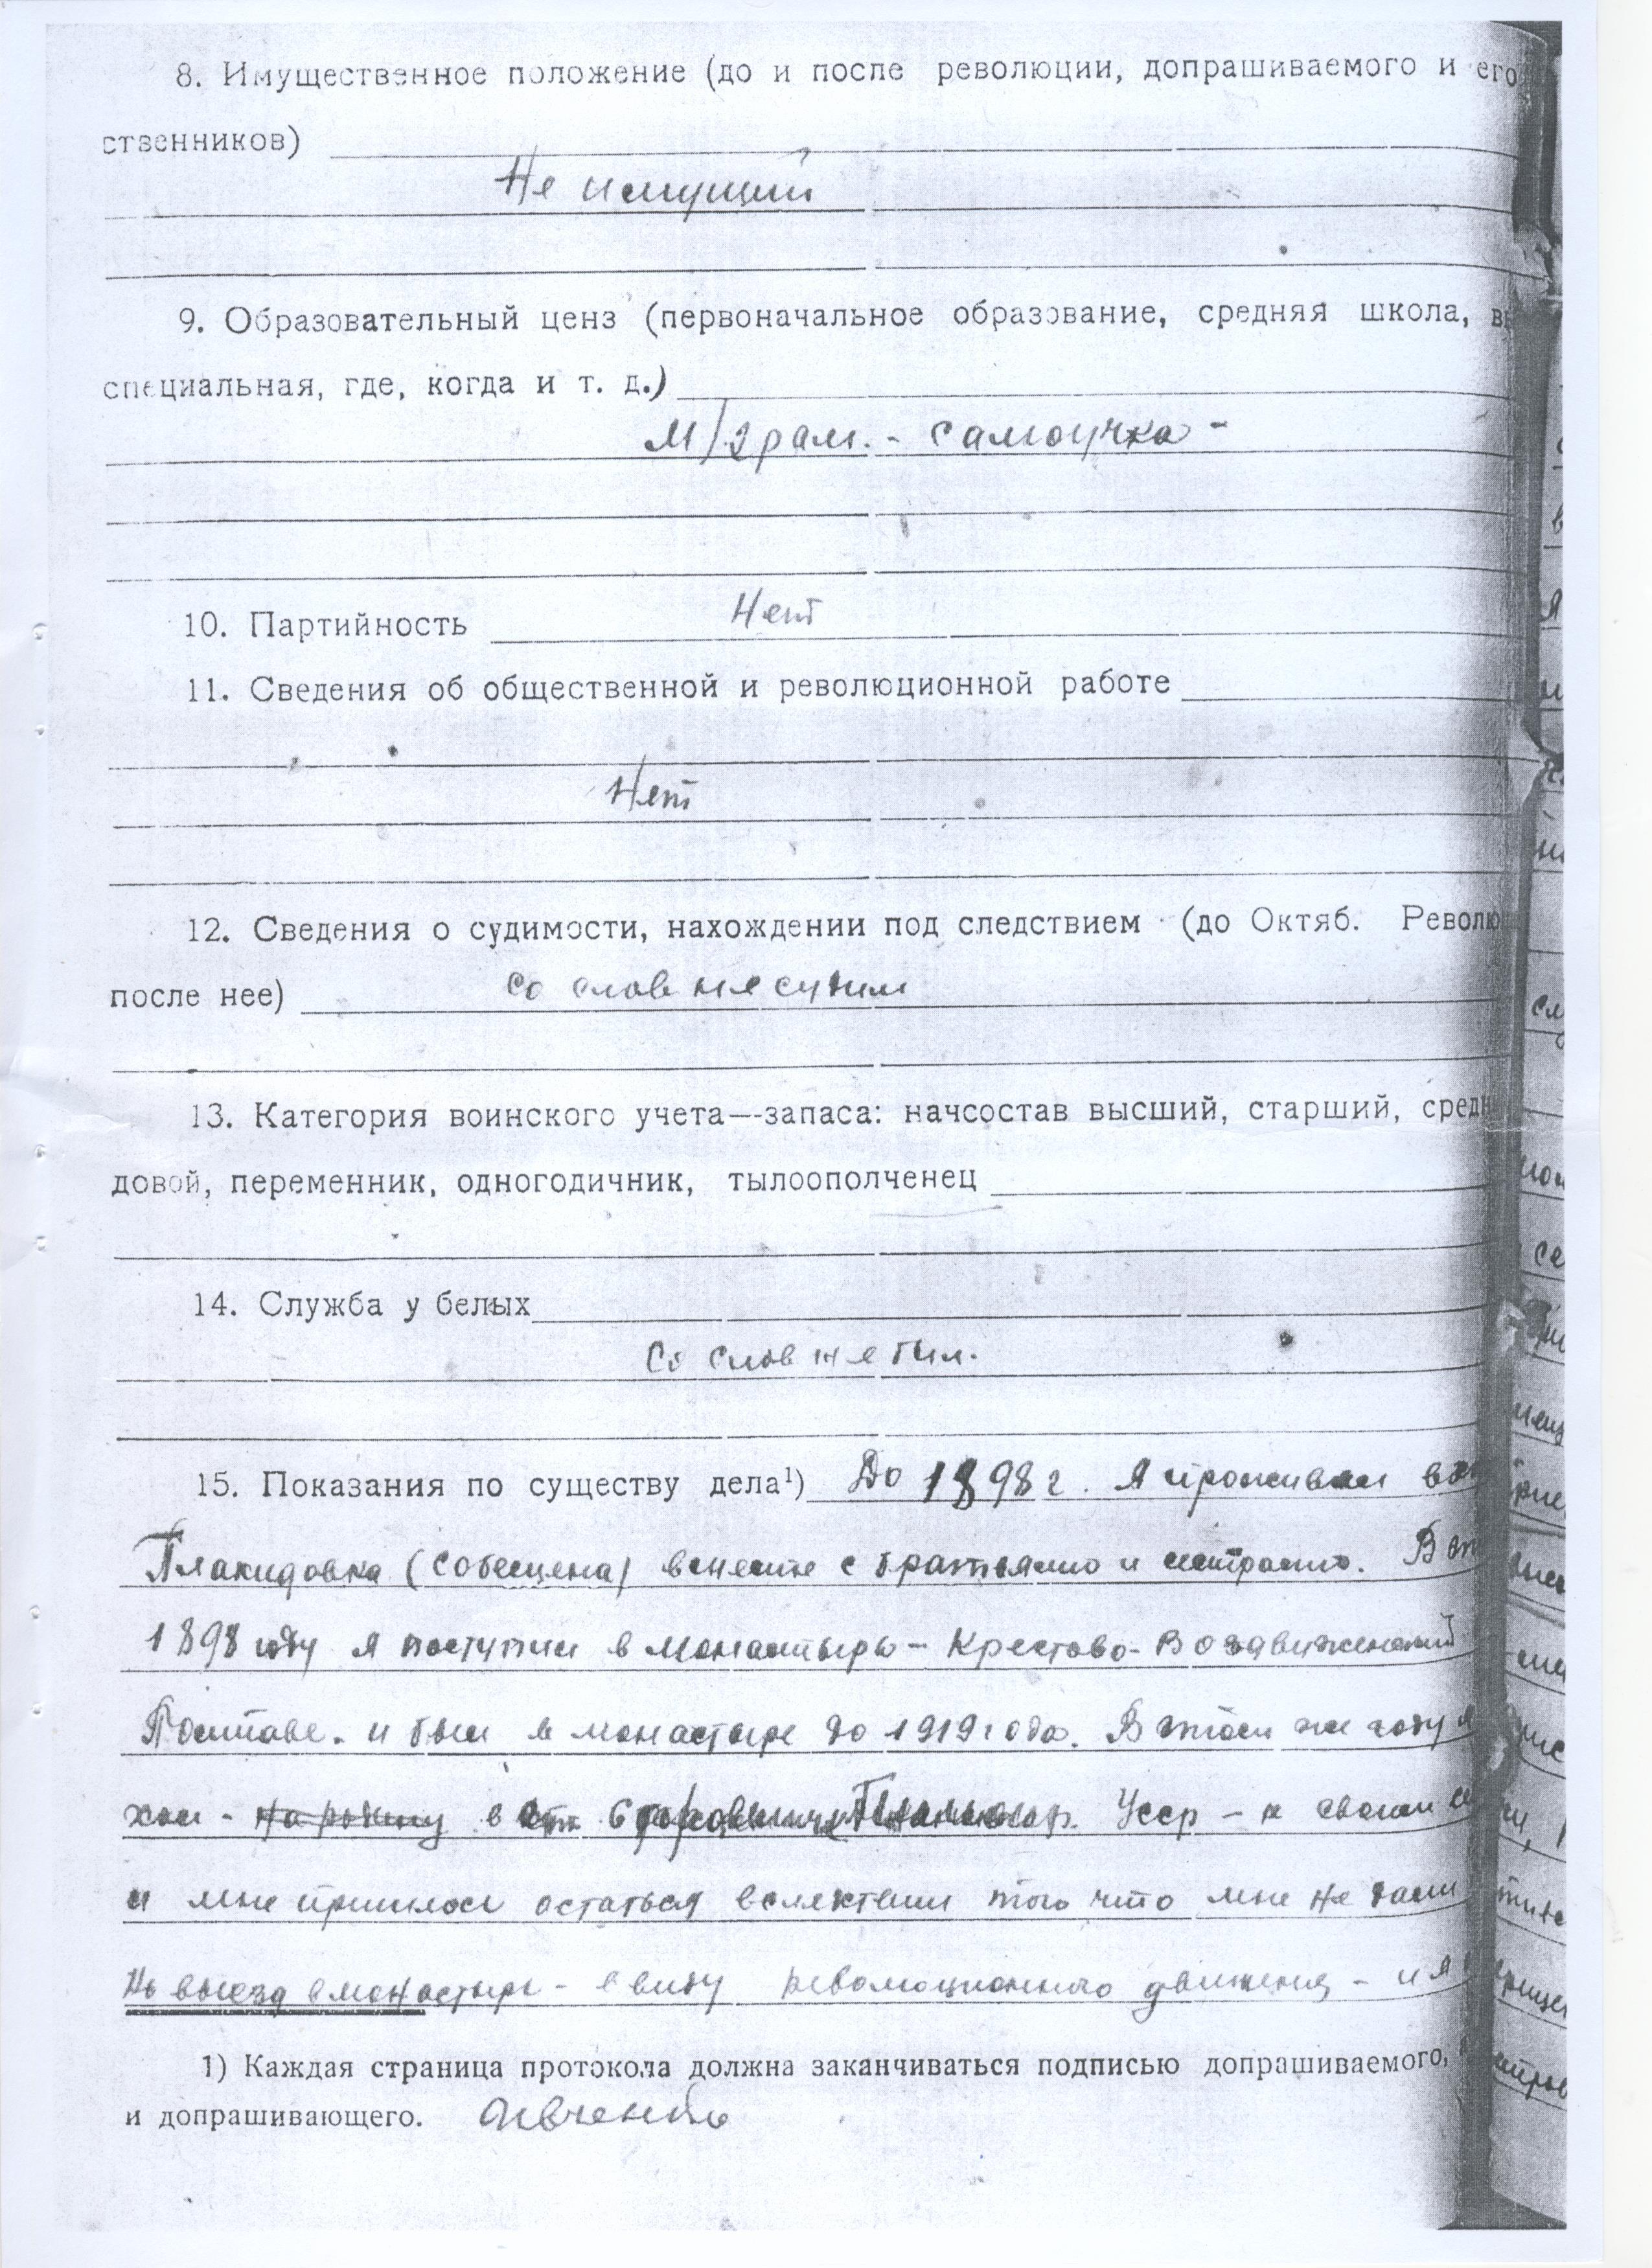 8. Имущественное положение (до и после революции, допрашиваемого и его
ственников)
Не имущий
9. Образовательный ценз (первоначальное образование, средняя школа, в
специальная, где, когда и т. д.)
М/грам. - самоучка -
10. Партийность Нет
11. Сведения об общественной и революционной работе
Нет
12. Сведения о судимости, нахождении под следствием (до Октяб. Револю
после нее) со слов не судим
13. Категория воинского учета—запаса: начсостав высший, старший, средн
довой, переменник, одногодичник, тылоополченец
14. Служба у белых
Со слов не был.
15. Показания по существу дела¹) До 1898 г. Я проживал в
Плакидовка вместе с братьями и сестрами. В
1898 году я поступил в монастырь - Крестово-Воздвиженский
Полтаве. и был в монастыре до 1919 года. В этом же году я
хал - в Усср - к своим
и мне пришлось остаться вследствии того что мне не дали
на выезд в монастырь - ввиду революционного движения - и я
1) Каждая страница протокола должна заканчиваться подписью допрашиваемого,
и допрашивающего.